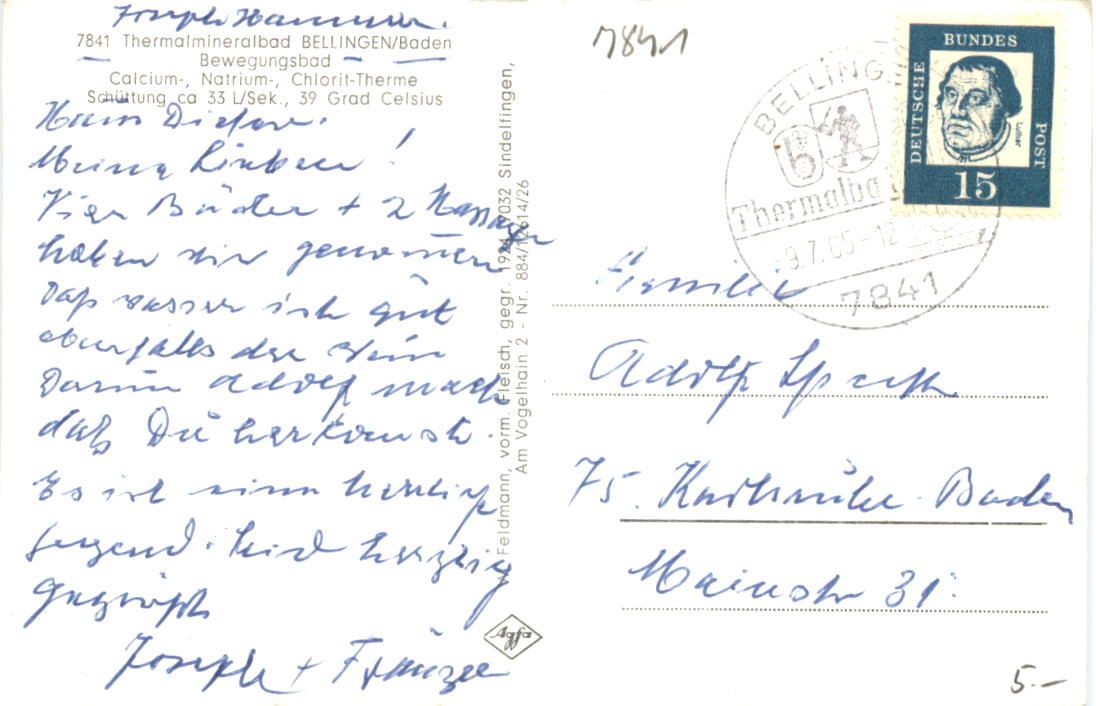 Joseph Hammer.
7841 Thermalmineralbad BELLINGEN/Baden
Bewegungsbad
Calcium-, Natrium-, Chlorit-Therme
Schüttung ca 33 L/Sek., 39 Grad Celsius
Haus Dieter.
Meine Lieben!
Vier Bäder + 2 Massagen
haben wir genommen
Das wasser ist gut
ebenfalls der Wein
Darum Adolf mach
daß Du herkomst.
Es ist eine herrliche
Gegend. Seid herzlig
Gegrüßt
Joseph + Fränzel
Feldmann, vorm. Fleisch, gegr. 1924, 7032 Sindelfingen,
Am Vogelhain 2 - Nr. 884/12614/26
Agfa
7841
BELLINGEN
b
Thermalba
-9.7.65-12
7841
DEUTSCHE
BUNDES
POST
Luther
15
Familie
Adolf
75. Karlsruhe-Baden
Mainstr 31.
5.-